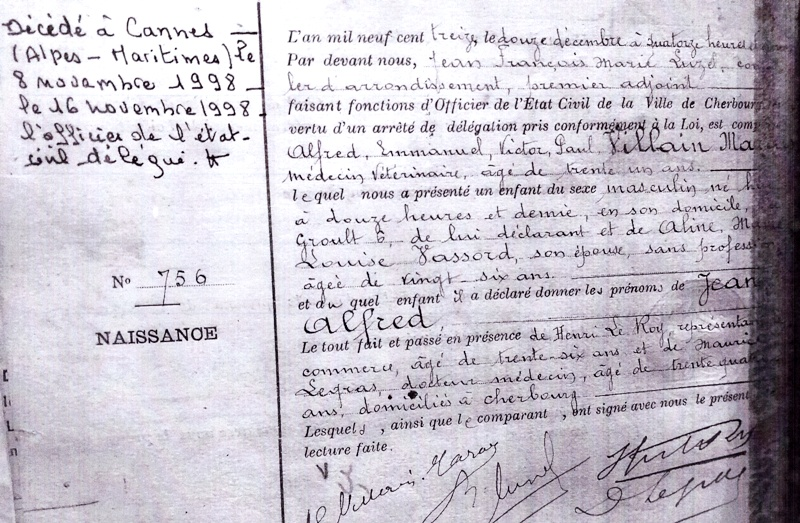 Décédé à Cannes
(Alpes-Maritimes) le
8 novembre 1998
le 16 novembre 1998
l'officier de l'état-
civil délégué.
N° 756
NAISSANCE
L'an mil neuf cent treize, le douze décembre à quatorze heures
Par devant nous, Jean François Marie Luzel,
ler d'arrondissement, premier adjoint
faisant fonctions d'Officier de l'État Civil de la Ville de Cherbourg,
vertu d'un arrêté de délégation pris conformément à la Loi, est
Alfred, Emmanuel, Victor, Paul Villain
médecin Vétérinaire, âgé de trente un ans.
lequel nous a présenté un enfant du sexe masculin né
à douze heures et demie, en son domicile,
Groult 6, de lui déclarant et de Aline,
Louise Vassord, son épouse, sans
âgée de vingt-six ans.
et au quel enfant il a déclaré donner les prénoms de Jean
Alfred,
Le tout fait et passé en présence de Henri Le Roy,
commerce, âgé de trente-six ans et de
Legras, docteur médecin, âgé de
ans, domiciliés à Cherbourg
Lesquels, ainsi que le comparant, ont signé avec nous le présent
lecture faite.